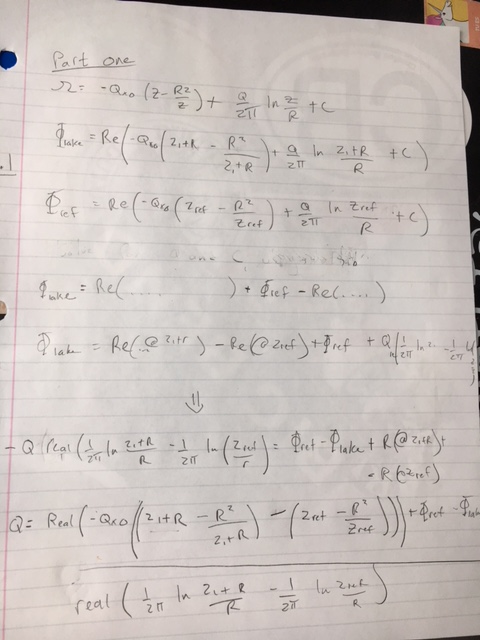 Part one
Ω = -Qx0 (z - R²/z) + Q/2π ln z/R + C
Φlake = Re(-Qx0 (z1+R - R²/z1+R) + Q/2π ln z1+R/R + C)
.1
Φref = Re(-Qx0 (zref - R²/zref) + Q/2π ln zref/R + C)
Φlake = Re(.....) + Φref - Re(....)
Φlake = Re(@ z1+r) - Re(@ zref) + Φref + Q(1/2π ln - 1/2π
⇓
- Q real(1/2π ln z1+R/R - 1/2π ln(zref/r) = Φref - Φlake + R(@ z1+R) +
- R(@ zref)
Q = Real(-Qx0((z1+R - R²/z1+R) - (zref - R²/zref))) + Φref - Φlake
real (1/2π ln z1+R/R - 1/2π ln zref/R)